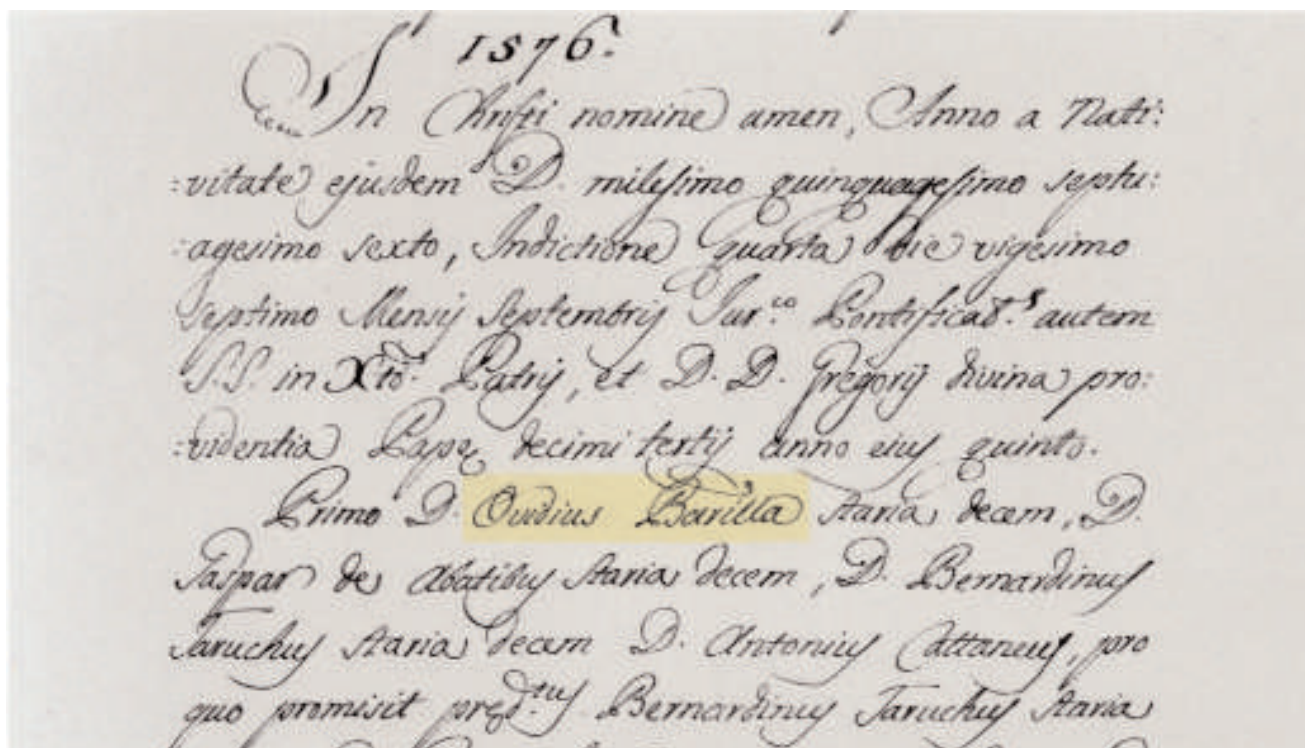 1576.
In Christi nomine amen, Anno a Nati:
:vitate ejusdem D. milesimo quinquagesimo septu:
:agesimo sexto, Indictione quarta die vigesimo
septimo Mensis Septembris Pontificat.s autem
S.S. in Xto. Patris, et D. D. Gregorij divina pro:
:videntia Pape decimi tertij anno eius quinto.
Primo D. Ovidius Barilla staria decem, D.
Gaspar de Abatibus staria decem, D. Bernardinus
Taruchus staria decem D. Antonius Cattaneus, pro
quo promisit pred.tus Bernardinus Taruchus staria